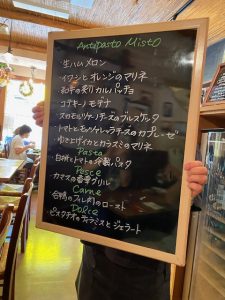 Antipasto Misto
・生ハムメロン
・イワシとオレンジのマリネ
・和牛の炙りカルパッチョ
・コテキーノ モデナ
・スカモルツァチーズのブルスケッタ
・トマトとモッツァレラチーズのカプレーゼ
・ゆで上げイカとカラスミのマリネ
Pasta
・白桃とトマトの冷製パスタ
Pesce
・カマスの香草グリル
Carne
・合鴨のフィレ肉のロースト
Dolce
・ピスタチオのティラミスとジェラート